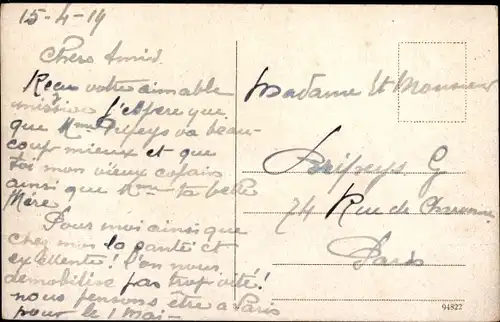 15-4-19
Chers Amis
Reçu votre aimable
missive J'espère que
que Mme va beau-
coup mieux et que
toi mon vieux copain
ainsi que Mme ta belle
Mère.
Pour moi ainsi que
chez moi la santé est
excellente! L'on nous
démobilise pas trop vite!
nous pensons être à Paris
pour le 1 Mai-
Madame Et Monsieur
G
74 Rue de Charonne
Paris
94822